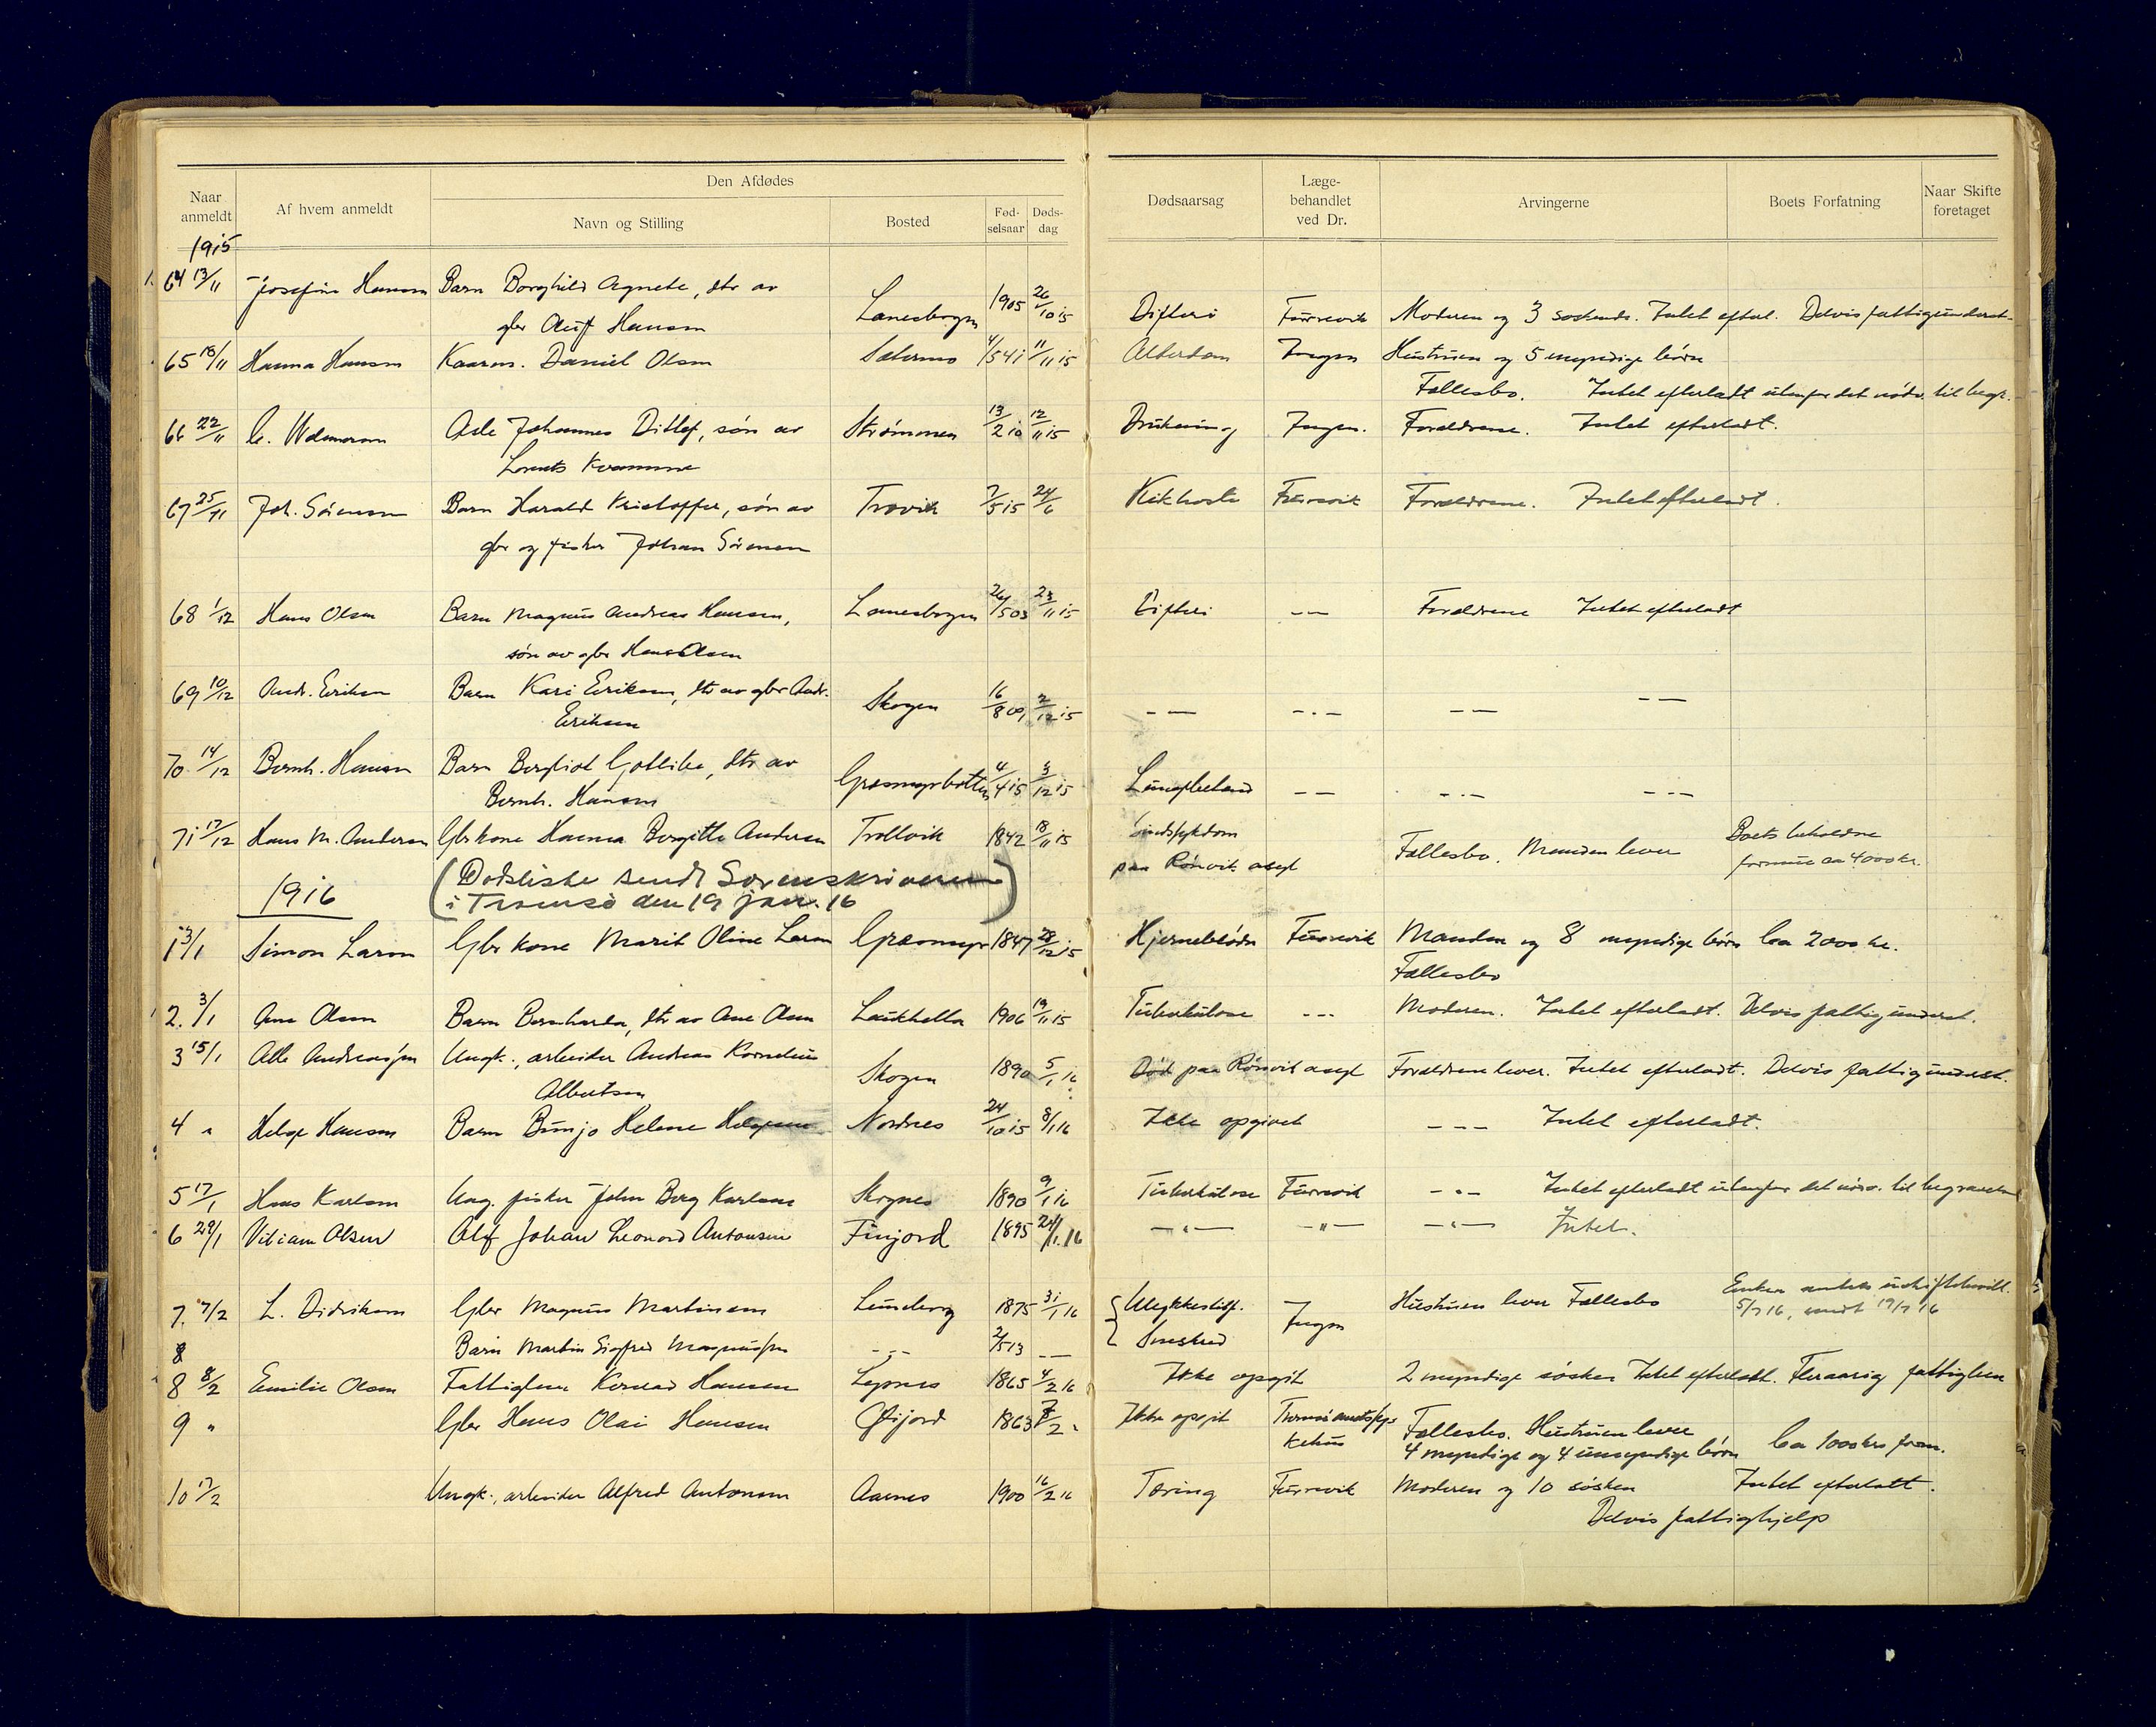 Naar anmeldt
Af hvem anmeldt
Den Afdødes
Navn og Stilling
Bosted
Fød-selsaar
Døds-dag
Dødsaarsag
Læge-behandlet ved Dr.
Arvingerne
Boets Forfatning
Naar Skifte foretaget
1915
64 13/11 Josefine Hansen Barn Borghild Agnete, dtr av
gbr Hansen Lanesbogen 1905 26/10 15 Difteri Furrevik Moderen og 3 søskende. Intet efterl. Delvis fattigunderst.
65 18/11 Hanna Hansen Kaarm. Daniel Olsen 11/11 15 Alderdom Ingen Hustruen og 5 myndige børn
Fællesbo. Intet efterladt utenfor det nødv. til begr.
66 22/11 Asle Johannes Ditlef, søn av Strømmen 13/2 10 12/11 15 Drukning Ingen. Forældrene. Intet efterladt.
Lorents Kvamme
67 25/11 Joh. Sørensen Barn Harald Kristoffer, søn av Trovik 7/5 15 24/6 Kikhoste Furrevik Forældrene. Intet efterladt.
gbr og fisker Johan Sørensen
68 1/12 Hans Olsen Barn Magnus Andreas Hansen, Lanesbogen 26/5 03 23/11 15 Difteri — — Forældrene Intet efterladt
søn av gbr Hans Olsen
69 10/12 Andr. Eriksen Barn Kari Eriksen, dtr av gbr Andr.
Eriksen Skogen 16/8 09 2/12 15 — — — · — — — — —
70 14/12 Bernh. Hansen Barn Bergliot Gotlibe, dtr av
Bernh. Hansen Græsmyrbotten 4/4 15 3/12 15 — — — · — — · —
71 17/12 Hans M. Andersen Gbrkone Hanna Bergitte Andersen Trollvik 1842 18/11 15 Sindssykdom
paa Rønvik asyl Fællesbo. Manden lever Boets beholdne
formue ca 4000 kr.
1916
(Dødsliste sendt Sorenskriveren
i Tromsø den 19 jan. 16)
1 3/1 Simon Larsen Gbr kone Marit Oline Larsen Græsmyr 1847 28/12 15 Hjerneblødn Furrevik Manden og 8 myndige børn Ca 2000 kr.
Fællesbo
2. 3/1 Ane Olsen Barn Bernharda, dtr av Ane Olsen Laukhella 1906 19/11 15 Tuberkulose - - - Moderen. Intet efterladt. Delvis fattigunderst.
3 15/1 Ungk., arbeider Andreas Kornelius
Albertsen Skogen 1890 5/1 16 Død paa Rønvik asyl Forældrene lever. Intet efterladt. Delvis fattigunderst.
4 " Helge Hansen Barn Helene Nordnes 24/10 15 8/1 16 Ikke opgivet - - - Intet efterladt.
5 17/1 Hans Karlsen Ung. fisker John Berg Karlsen Skognes 1890 9/1 16 Tuberkulose Furrevik - " - Intet efterladt utenfor det nødv. til begravelse
6 29/1 Viliam Olsen Alf Johan Leonard Antonsen Finjord 1895 24/1. 16 — " — — " — — " — Intet.
7. 7/2 L. Didriksen Gbr Magnus Martinsen 1875 31/1 16 Ulykkestilf. Ingen Hustruen lever Fællesbo Enken
5/7 16, sendt 19/7 16
8 Barn Martin Sigfred Magnussen - " - 2/5 13 — — Sneskred
8 8/2 Emilie Olsen Fattiglem Konrad Hansen Lysnes 1865 4/2 16 Ikke opgit 2 myndige søsken Intet efterlatt. Fleraarig fattiglem
9 " Gbr Hans Olai Hansen Gisjord 1863 Ikke opgit Tromsø amtssy-
kehus Fællesbo. Hustruen lever
4 myndige og 4 umyndige børn Ca 1000 kr form.
10 17/2 Ungk., arbeider Alfred Antonsen Aarnes 1900 16/2 16 Tæring Furrevik Moderen og 10 søsken Intet efterlatt.
Delvis fattighjelp